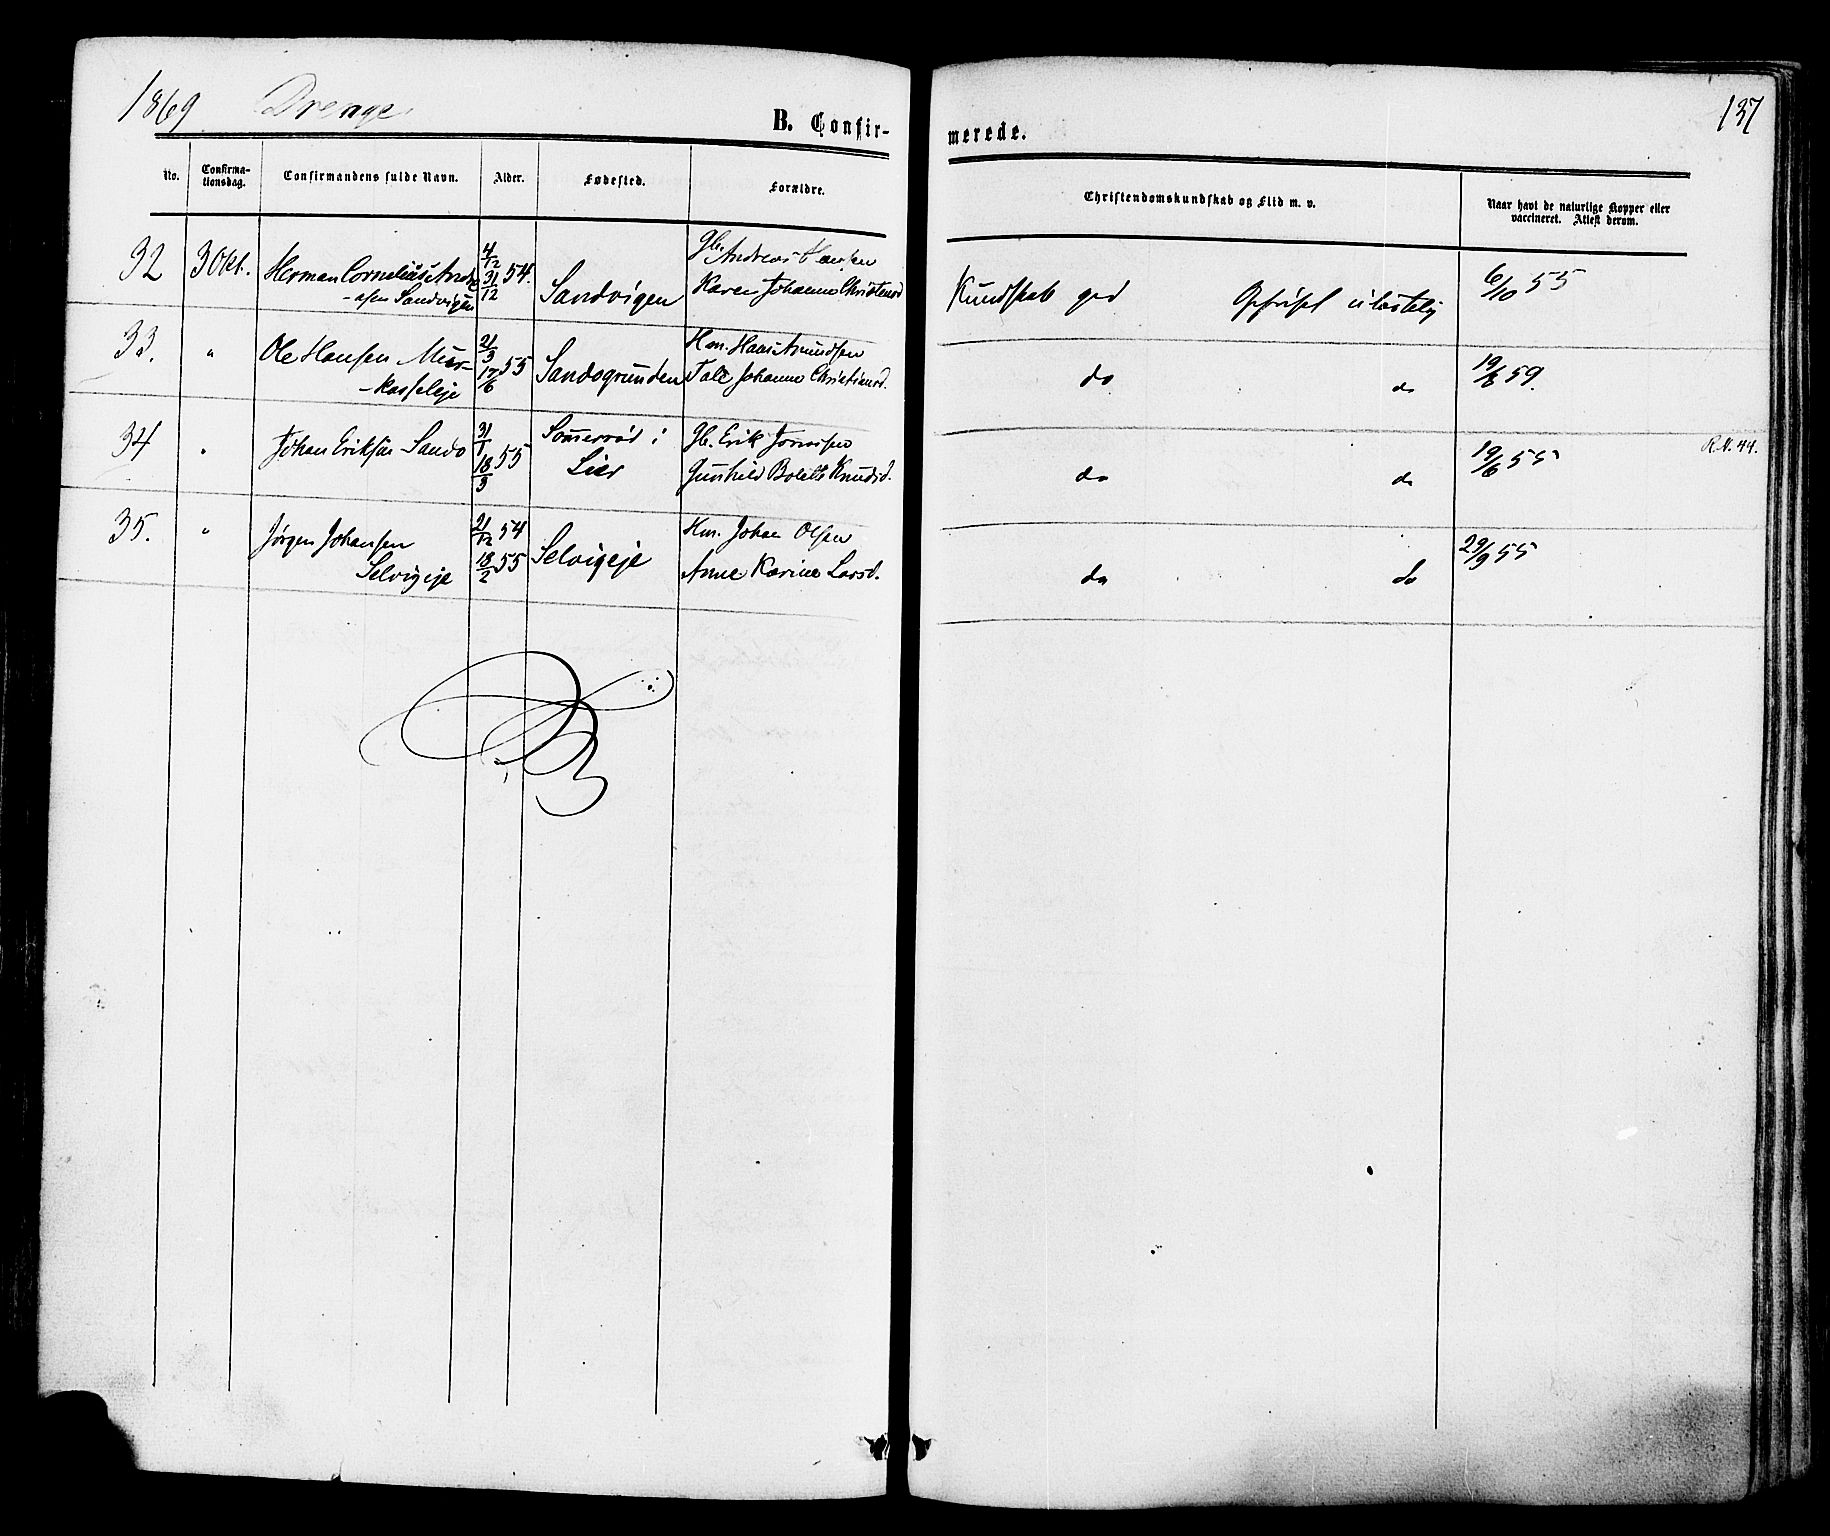 1869 Drenge.
B. Confirmerede.
137
No. Confirmationsdag. Confirmandens fulde Navn. Alder. Fødested. Forældre. Christendomskundskab og Flid m. v. Naar havt de naturlige Kopper eller vaccineret. Attest derom.
32 3 Okt. Herman Cornelius Andre- 4/12 54. Gb. Andreas Hansen
-asen Sandvigen 31/12 Sandvigen Karen Johanne Christensd Kundskab god Opførsel ulastelig 6/10 55
33. " Ole Hansen 21/3 55 Sandsgrunden Hm. Hans Amundsen
17/6 Tale Johanne Christiansd. do do 19/8 59.
34 " Johan Eriksen Sando 31/1 55 Sommerrød i Gb. Erik
18/3 Lier Gunhild Bolette Knudsd. do do 19/6 55 R.N. 44.
35. " Jørgen Johansen 21/12 54 Selvigeje Hm. Johan Olsen
Selvigeje 18/2 55 Anne Karine Larsd. do do 29/9 55